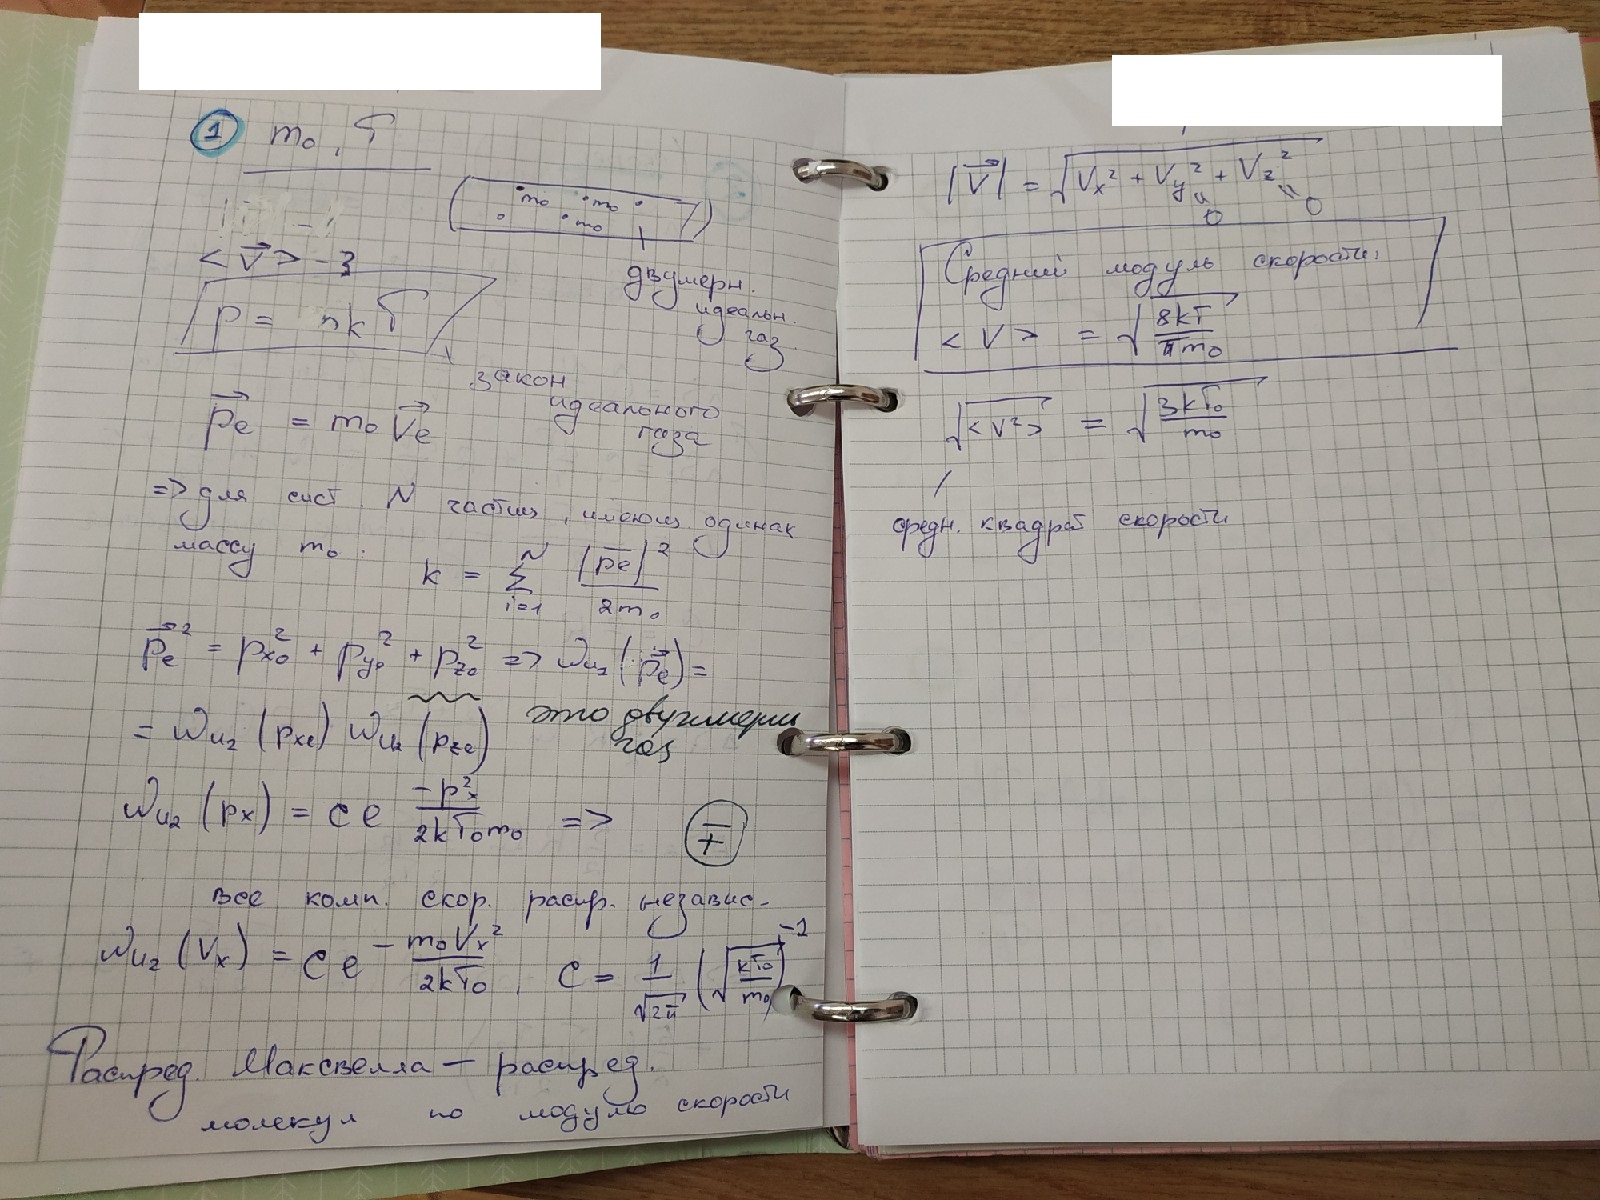 1 m₀, T
m₀ m₀
m₀
<v⃗> - ?
двумерн.
идеальн.
газ
p = nkT
закон
идеального
газа
p⃗e = m₀ v⃗e
=> для сист N частиц, имеющ. одинак
массу m₀.
k = Σ_{i=1}^{N} |p⃗e|² / 2m₀
p⃗e² = px₀² + py₀² + pz₀² => ω_{и2}(p⃗e) =
= ω_{и2}(pxe) ω_{и2}(pze) это двухмерн
газ
ω_{и2}(px) = c e^{-p²x / 2kT₀m₀} => ∓
все комп. скор. распр. независ.
ω_{и2}(Vx) = c e^{-m₀Vx² / 2kT₀}, C = 1/√2π (√(kT₀/m₀))^{-1}
Распред. Максвелла — распред.
молекул по модулю скорости
|V⃗| = √(Vx² + Vy² + Vz²)
" "
0 0
Средний модуль скорости:
<V> = √(8kT/πm₀)
√<V²> = √(3kT₀/m₀)
средн. квадрат скорости